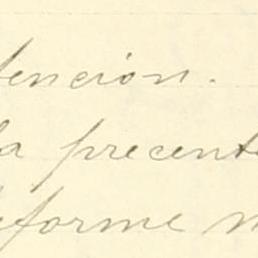 tención.
la precent
eforme m